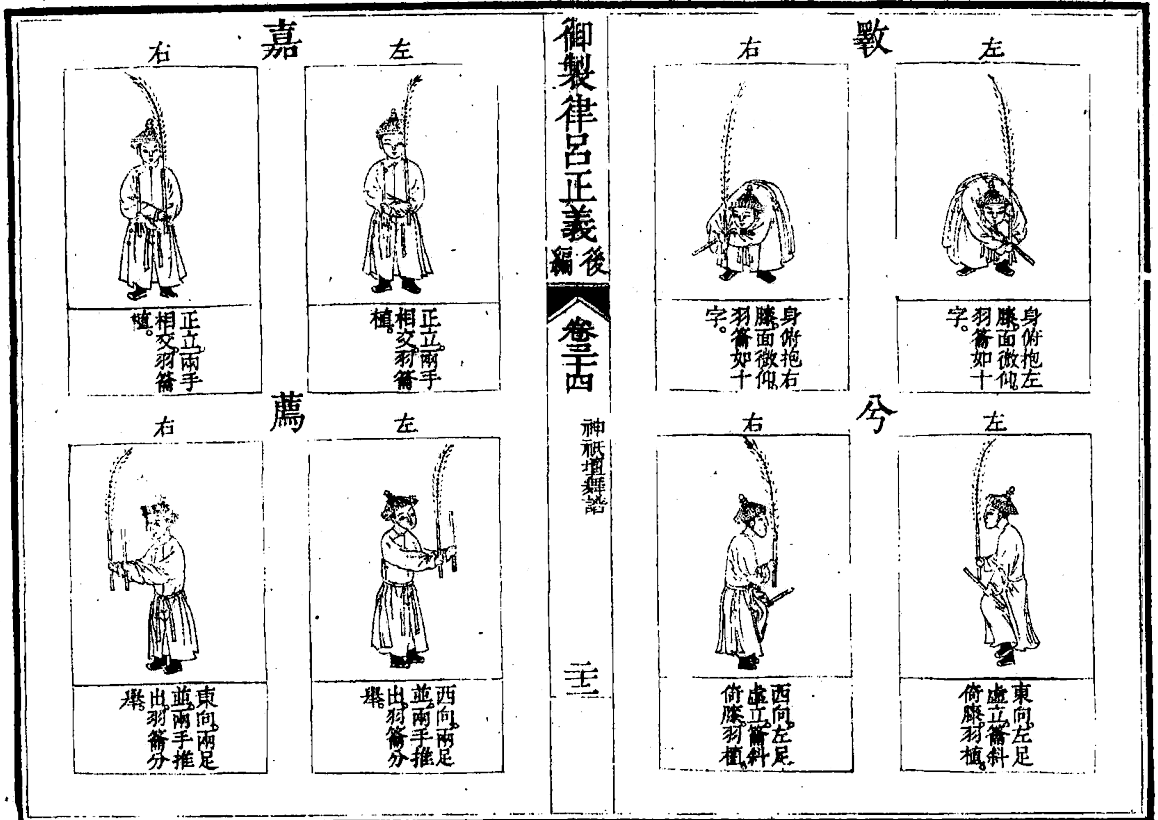 斁
左
身俯抱左
膝。面微仰。
羽籥如十
字。
右
身俯抱右
膝。面微仰。
羽籥如十
字。
兮
左
東向。左足
虛立。籥斜
倚膝。羽植。
右
西向。左足
虛立。籥斜
倚膝。羽植。
御製律呂正義後編
卷三十四
神祇壇舞譜
二十二
嘉
左
正立。兩手
相交。羽籥
植。
右
正立。兩手
相交。羽籥
植。
薦
左
西向。兩足
並。兩手推
出。羽籥分
舉。
右
東向。兩足
並。兩手推
出。羽籥分
舉。